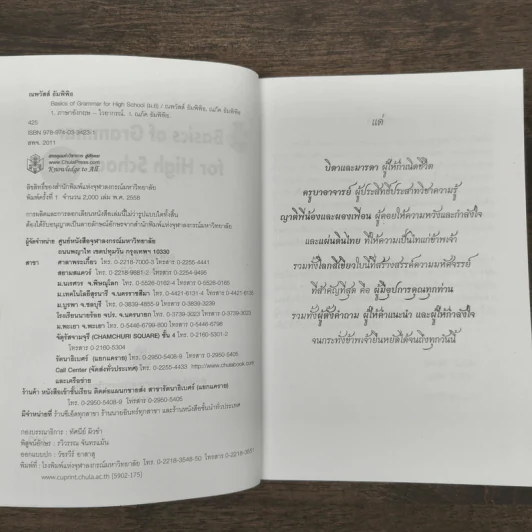 ณพวัสส์ ธัมพิพิธ
Basics of Grammar for High School (ม.6) / ณพวัสส์ ธัมพิพิธ, ณภัค ธัมพิพิธ
1. ภาษาอังกฤษ -- ไวยากรณ์. I. ณภัค ธัมพิพิธ.
425
ISBN 978-974-03-3423-1
สพจ. 2011
www.ChulaPress.com
Knowledge to All
ลิขสิทธิ์ของสำนักพิมพ์แห่งจุฬาลงกรณ์มหาวิทยาลัย
พิมพ์ครั้งที่ 1 จำนวน 2,000 เล่ม พ.ศ. 2558
การผลิตและการลอกเลียนหนังสือเล่มนี้ไม่ว่ารูปแบบใดทั้งสิ้น
ต้องได้รับอนุญาตเป็นลายลักษณ์อักษรจากสำนักพิมพ์แห่งจุฬาลงกรณ์มหาวิทยาลัย
ผู้จัดจำหน่าย ศูนย์หนังสือจุฬาลงกรณ์มหาวิทยาลัย
ถนนพญาไท เขตปทุมวัน กรุงเทพฯ 10330
สาขา ศาลาพระเกี้ยว โทร. 0-2218-7000-3 โทรสาร 0-2255-4441
สยามสแควร์ โทร. 0-2218-9881-2 โทรสาร 0-2254-9495
ม.นเรศวร จ.พิษณุโลก โทร. 0-5526-0162-4 โทรสาร 0-5526-0165
ม.เทคโนโลยีสุรนารี จ.นครราชสีมา โทร. 0-4421-6131-4 โทรสาร 0-4421-6135
ม.บูรพา จ.ชลบุรี โทร. 0-3839-4855-9 โทรสาร 0-3839-3239
โรงเรียนนายร้อย จปร. จ.นครนายก โทร. 0-3739-3023 โทรสาร 0-3739-3023
ม.พะเยา จ.พะเยา โทร. 0-5446-6799-800 โทรสาร 0-5446-6798
จัตุรัสจามจุรี (CHAMCHURI SQUARE) ชั้น 4 โทร. 0-2160-5301-2
โทรสาร 0-2160-5304
รัตนาธิเบศร์ (แยกแคราย) โทร. 0-2950-5408-9 โทรสาร 0-2950-5405
Call Center (จัดส่งทั่วประเทศ) โทร. 0-2255-4433 http://www.chulabook.com
และเครือข่าย
ร้านค้า หนังสือเข้าชั้นเรียน ติดต่อแผนกขายส่ง สาขารัตนาธิเบศร์ (แยกแคราย)
โทร. 0-2950-5408-9 โทรสาร 0-2950-5405
มีจำหน่ายที่ ร้านซีเอ็ดทุกสาขา ร้านนายอินทร์ทุกสาขา และร้านหนังสือชั้นนำทั่วประเทศ
กองบรรณาธิการ : ทัศนีย์ ผิวขำ
พิสูจน์อักษร : รวิวรรณ จันทรแม้น
ออกแบบปก : วัชรวีร์ ยาสาสู
พิมพ์ที่ : โรงพิมพ์แห่งจุฬาลงกรณ์มหาวิทยาลัย โทร. 0-2218-3548-50 โทรสาร 0-2218-3551
www.cuprint.chula.ac.th [5902-175]
แด่
บิดาและมารดา ผู้ให้กำเนิดชีวิต
ครูบาอาจารย์ ผู้ประสิทธิ์ประสาทวิชาความรู้
ญาติพี่น้องและผองเพื่อน ผู้คอยให้ความหวังและกำลังใจ
และแผ่นดินไทย ที่ให้ความเป็นไทแก่ข้าพเจ้า
รวมทั้งโลกสีเขียวใบนี้ที่สร้างสรรค์ความมหัศจรรย์
ที่สำคัญที่สุด คือ ผู้มีอุปการคุณทุกท่าน
รวมทั้งผู้ตั้งคำถาม ผู้ให้คำแนะนำ และผู้ให้กำลังใจ
จนกระทั่งข้าพเจ้ายืนหยัดได้จนถึงทุกวันนี้